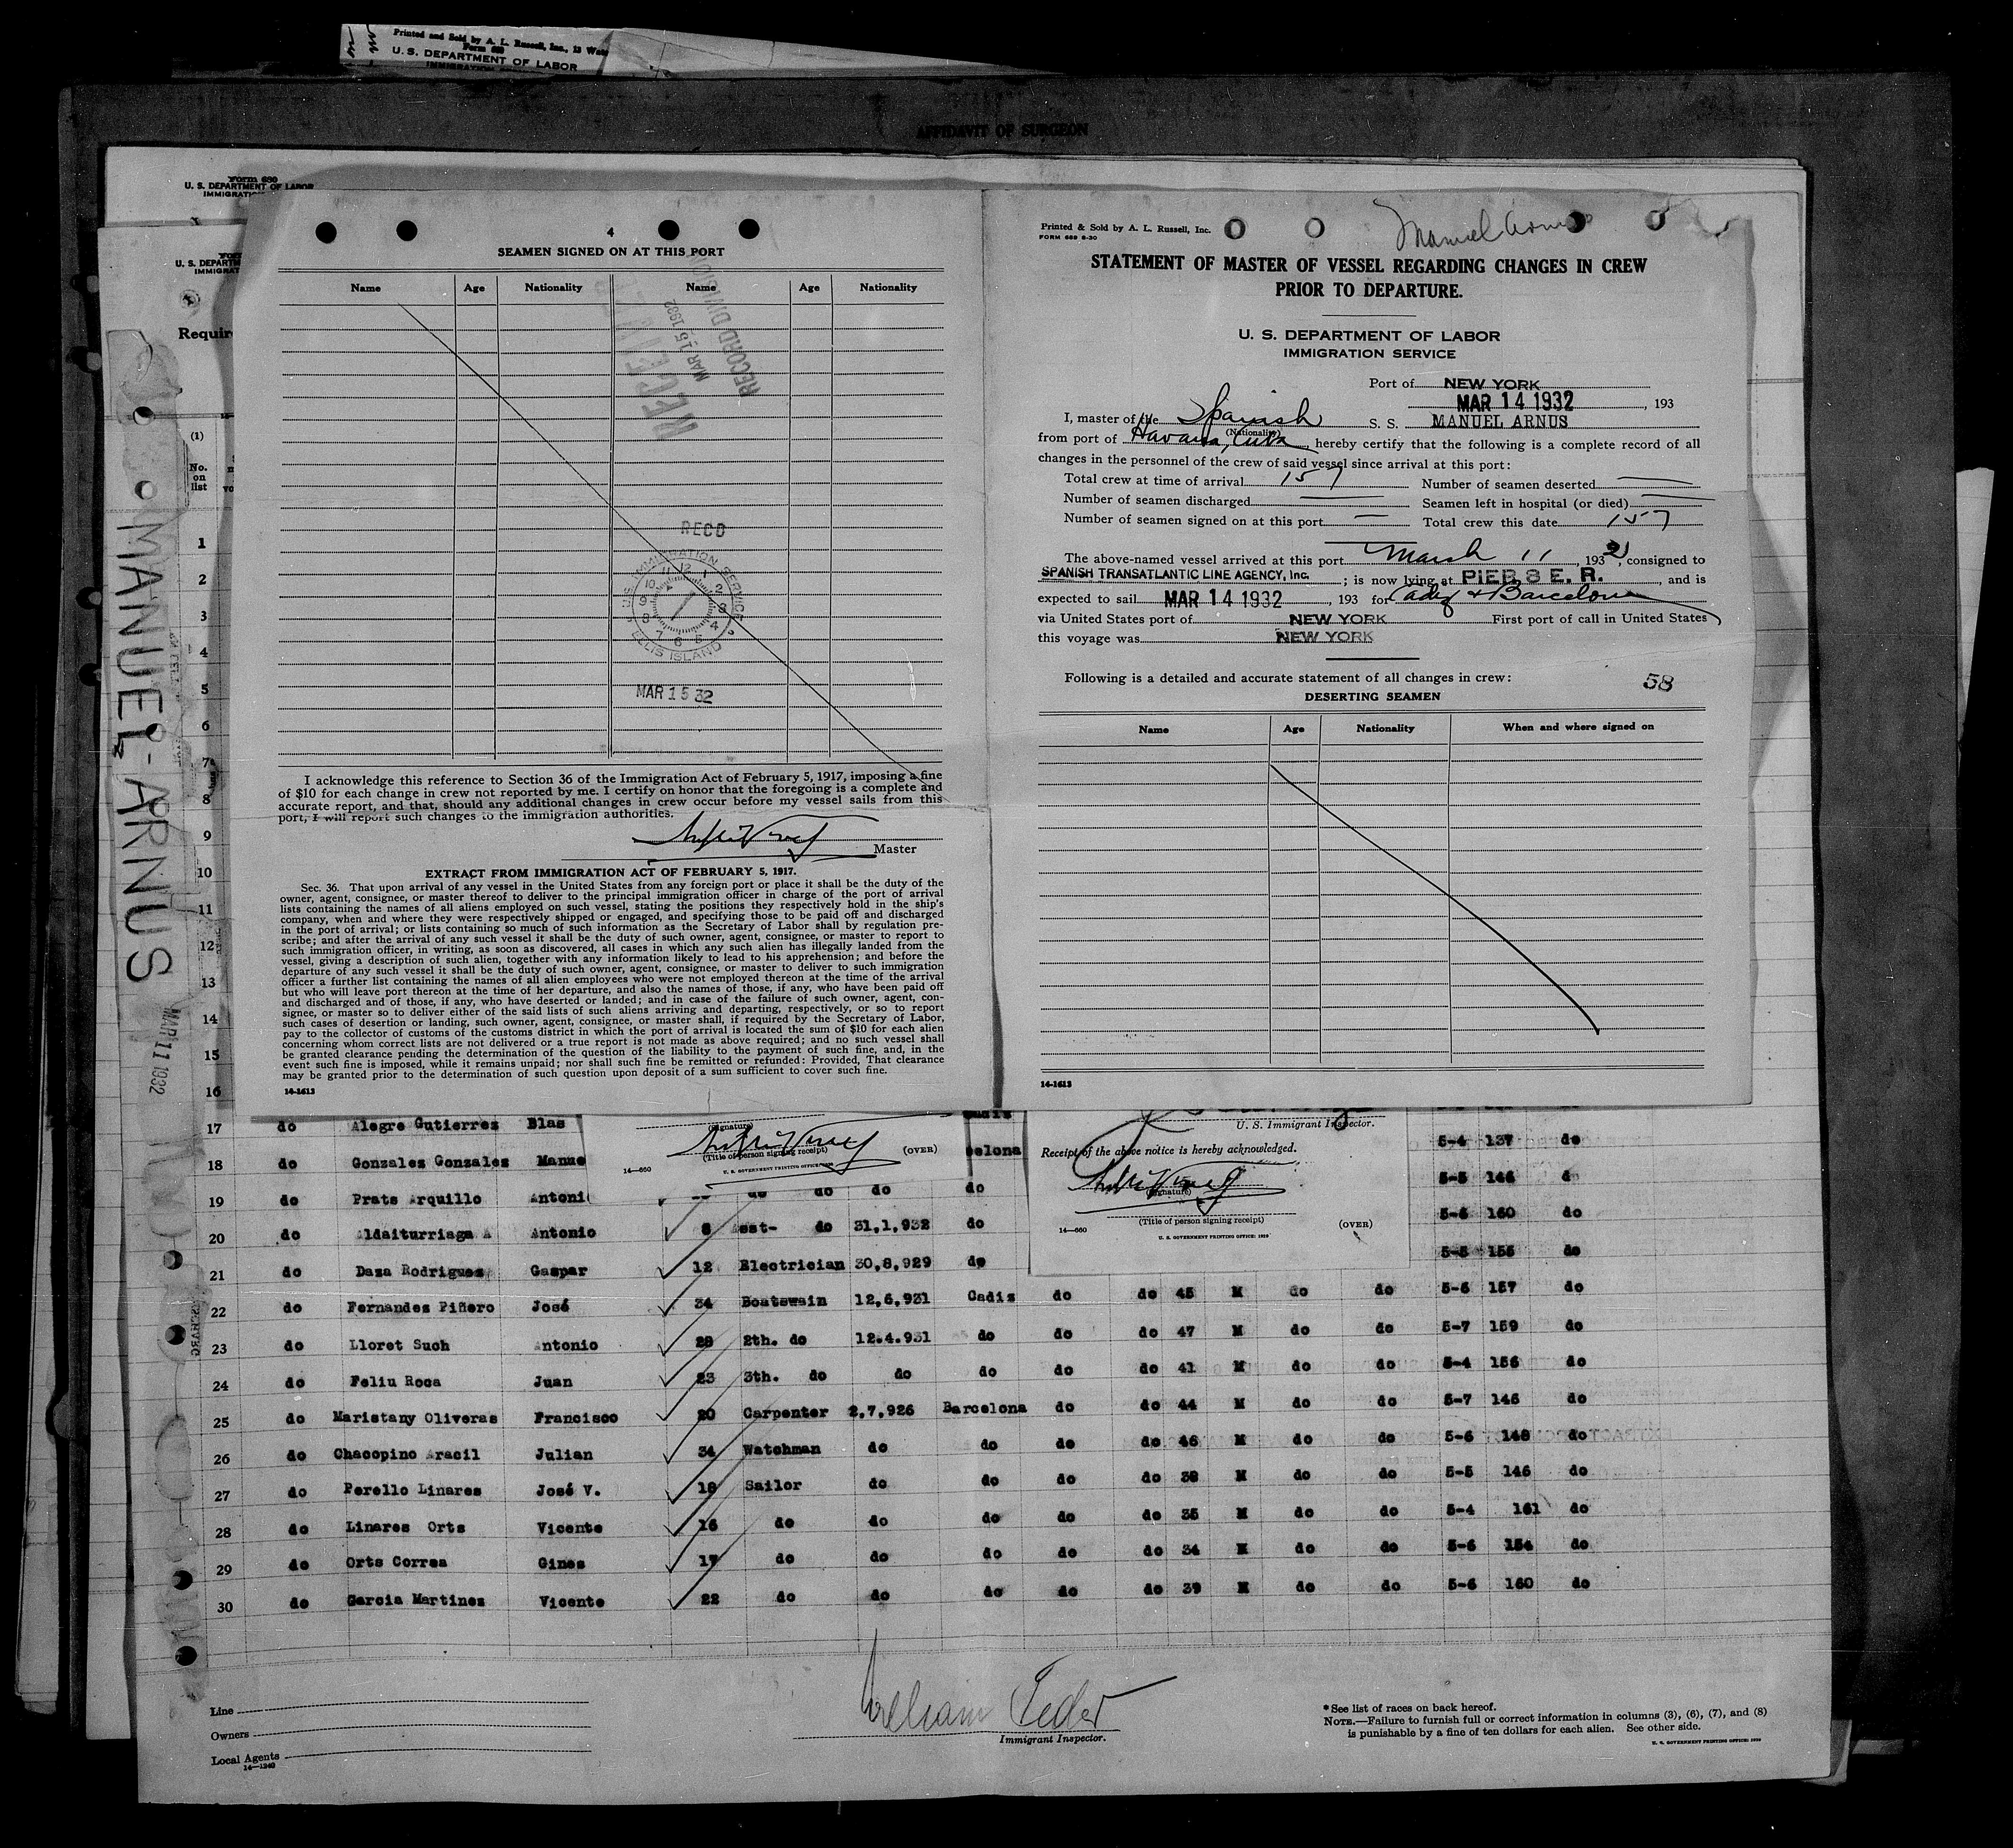 Printed and Sold by A. L. Russell, Inc., 13 Wate
Form 689
U. S. DEPARTMENT OF LABOR
AFFIDAVIT OF SURGEON
Form 680
U. S. DEPARTMENT OF LABOR
IMMIGRATI
U. S. DEPARTM
IMMIGRAT
Require
(1)
No. on list
MANUEL-ARNUS
MAR 11 1932
4
SEAMEN SIGNED ON AT THIS PORT
Name Age Nationality Name Age Nationality
RECEIVED
MAR 15 1932
RECORD DIVISION
RECD
U.S. IMMIGRATION SERVICE
ELLIS ISLAND
MAR 15 32
I acknowledge this reference to Section 36 of the Immigration Act of February 5, 1917, imposing a fine
of $10 for each change in crew not reported by me. I certify on honor that the foregoing is a complete and
accurate report, and that, should any additional changes in crew occur before my vessel sails from this
port, I will report such changes to the immigration authorities.
Master
EXTRACT FROM IMMIGRATION ACT OF FEBRUARY 5, 1917.
Sec. 36. That upon arrival of any vessel in the United States from any foreign port or place it shall be the duty of the
owner, agent, consignee, or master thereof to deliver to the principal immigration officer in charge of the port of arrival
lists containing the names of all aliens employed on such vessel, stating the positions they respectively hold in the ship's
company, when and where they were respectively shipped or engaged, and specifying those to be paid off and discharged
in the port of arrival; or lists containing so much of such information as the Secretary of Labor shall by regulation pre-
scribe; and after the arrival of any such vessel it shall be the duty of such owner, agent, consignee, or master to report to
such immigration officer, in writing, as soon as discovered, all cases in which any such alien has illegally landed from the
vessel, giving a description of such alien, together with any information likely to lead to his apprehension; and before the
departure of any such vessel it shall be the duty of such owner, agent, consignee, or master to deliver to such immigration
officer a further list containing the names of all alien employees who were not employed thereon at the time of the arrival
but who will leave port thereon at the time of her departure, and also the names of those, if any, who have been paid off
and discharged and of those, if any, who have deserted or landed; and in case of the failure of such owner, agent, con-
signee, or master so to deliver either of the said lists of such aliens arriving and departing, respectively, or so to report
such cases of desertion or landing, such owner, agent, consignee, or master shall, if required by the Secretary of Labor,
pay to the collector of customs of the customs district in which the port of arrival is located the sum of $10 for each alien
concerning whom correct lists are not delivered or a true report is not made as above required; and no such vessel shall
be granted clearance pending the determination of the question of the liability to the payment of such fine, and, in the
event such fine is imposed, while it remains unpaid; nor shall such fine be remitted or refunded: Provided, That clearance
may be granted prior to the determination of such question upon deposit of a sum sufficient to cover such fine.
14-1613
Printed & Sold by A. L. Russell, Inc.
FORM 689 6-30
Manuel Arnus
STATEMENT OF MASTER OF VESSEL REGARDING CHANGES IN CREW
PRIOR TO DEPARTURE.
U. S. DEPARTMENT OF LABOR
IMMIGRATION SERVICE
Port of NEW YORK
MAR 14 1932, 193
I, master of the Spanish S. S. MANUEL ARNUS
(Nationality)
from port of Havana, Cuba, hereby certify that the following is a complete record of all
changes in the personnel of the crew of said vessel since arrival at this port:
Total crew at time of arrival 157 Number of seamen deserted —
Number of seamen discharged — Seamen left in hospital (or died) —
Number of seamen signed on at this port — Total crew this date 157
The above-named vessel arrived at this port March 11, 1932, consigned to
SPANISH TRANSATLANTIC LINE AGENCY, Inc. ; is now lying at PIER 8 E. R. , and is
expected to sail MAR 14 1932, 193 for Cadiz & Barcelona
via United States port of NEW YORK First port of call in United States
this voyage was NEW YORK
Following is a detailed and accurate statement of all changes in crew:
58
DESERTING SEAMEN
Name Age Nationality When and where signed on
14-1613
1
2
3
4
5
6
7
8
9
10
11
12
13
14
15
16
17 do Alegre Gutierrez Blas
18 do Gonzales Gonzales Manue
19 do Prats Arquillo Antoni do do do do
20 do Aldaiturriaga A Antonio 8 Asst- do 31,1,932 do
21 do Daza Rodrigues Gaspar 12 Electrician 30,8,929 do
22 do Fernandez Piñero José 34 Boatswain 12,6,931 Cadiz do do 45 M do do 5-6 157 do
23 do Lloret Such Antonio 28 2th. do 12.4.931 do do do 47 M do do 5-7 159 do
24 do Feliu Roca Juan 23 3th. do do do do do 41 M do do 5-4 156 do
25 do Maristany Oliveras Francisco 20 Carpenter 2,7,926 Barcelona do do 44 M do do 5-7 145 do
26 do Chacopino Aracil Julian 34 Watchman do do do do 46 M do do 5-6 148 do
27 do Perello Linares José V. 18 Sailor do do do do 38 M do do 5-5 146 do
28 do Linares Orts Vicente 16 do do do do do 35 M do do 5-4 161 do
29 do Orts Correa Gines 17 do do do do do 34 M do do 5-6 154 do
30 do Garcia Martinez Vicente 22 do do do do do 39 M do do 5-6 160 do
5-4 137 do
5-5 146 do
5-6 160 do
5-5 155 do
(Signature)
(Title of person signing receipt)
(OVER)
14—660
U. S. GOVERNMENT PRINTING OFFICE
U. S. Immigrant Inspector.
Receipt of the above notice is hereby acknowledged.
(Signature)
(Title of person signing receipt)
(OVER)
14—660
U. S. GOVERNMENT PRINTING OFFICE: 1929
Line
Owners
Local Agents
14—1240
William Feder
Immigrant Inspector.
* See list of races on back hereof.
NOTE.—Failure to furnish full or correct information in columns (3), (6), (7), and (8)
is punishable by a fine of ten dollars for each alien. See other side.
U. S. GOVERNMENT PRINTING OFFICE: 1929